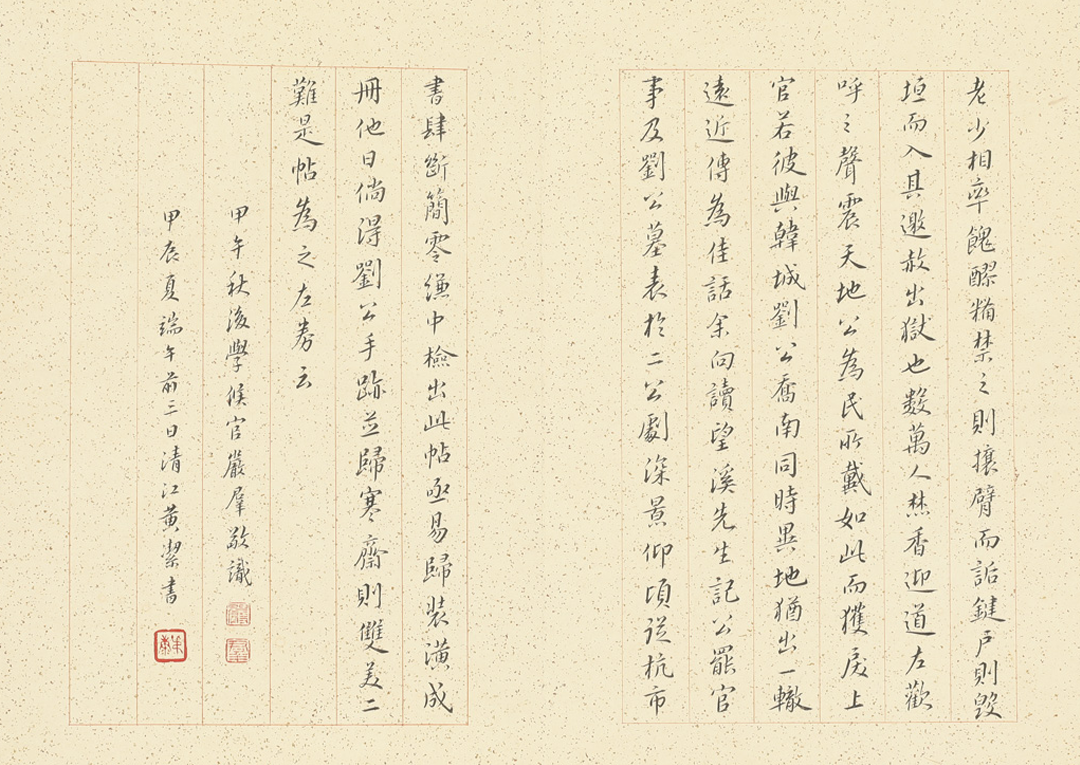 老少相率餽醪糒禁之則攘臂而詬鍵戶則毀
垣而入其邀赦出獄也數萬人焚香迎道左歡
呼之聲震天地公為民所戴如此而獲戾上
官若彼與韓城劉公喬南同時異地猶出一轍
遠近傳為佳話余向讀望溪先生記公罷官
事及劉公墓表於二公劇深景仰頃從杭市
書肆斷簡零縑中檢出此帖亟易歸裝潢成
冊他日倘得劉公手跡並歸寒齋則雙美二
難是帖為之左券云
甲午秋後學候官嚴群敬識
甲辰夏端午前三日清江黃潔書